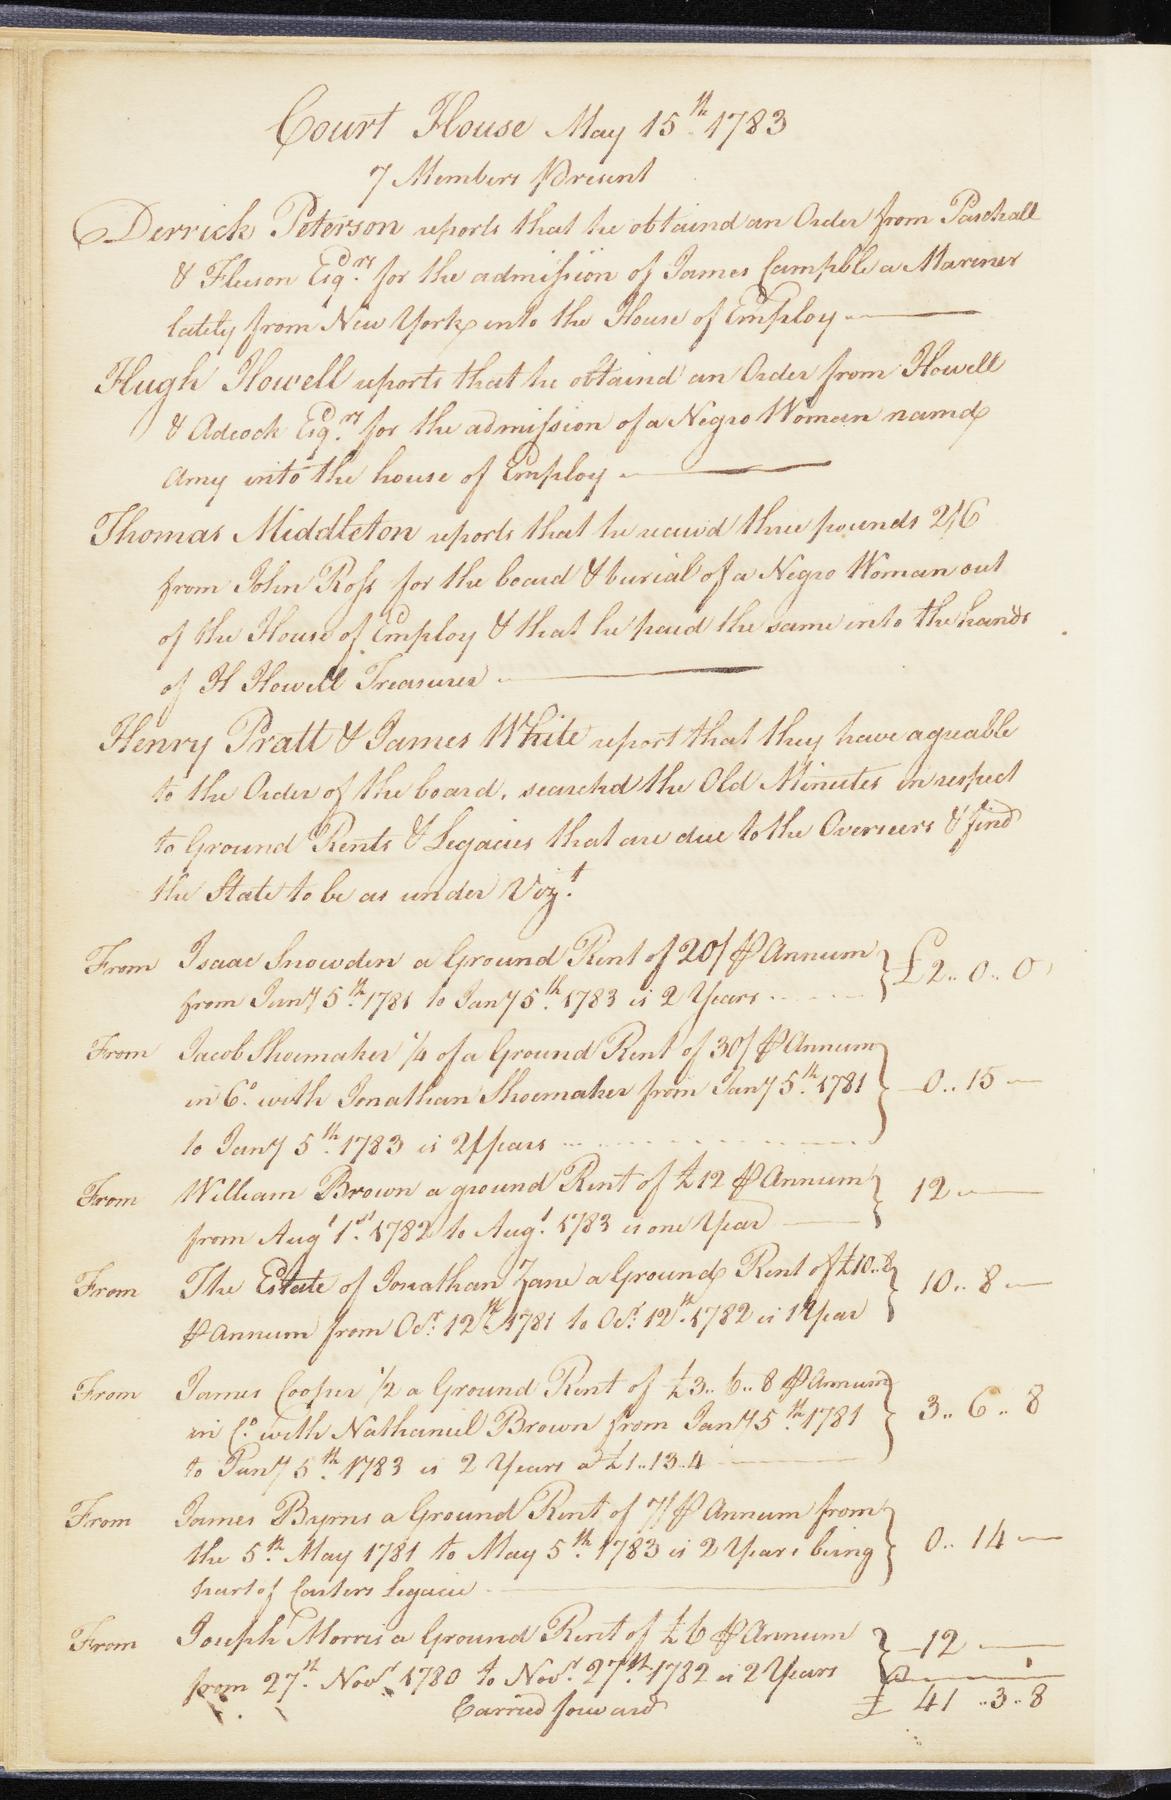 Court House May 15th 1783
7 Members Present
Derrick Peterson reports that he obtaind an Order from Paschall
& Fleeson Esqrs for the admission of James Campble a Mariner
lately from New York into the House of Employ
Hugh Howell reports that he obtaind an Order from Howell
& Adcock Esqrs for the admission of a Negro Woman namd
Amy into the house of Employ
Thomas Middleton reports that he receivd three pounds 2/6
from John Ross for the board & burial of a Negro Woman out
of the House of Employ & that he paid the same into the hands
of H Howell Treasurer
Henry Pratt & James White report that they have agreable
to the Order of the board, searchd the Old Minutes in respect
to Ground Rents & Legacies that are due to the Overseers & find
the State to be as under Vizt
From Isaac Snowden a Ground Rent of 20/ ⅌ Annum
from Jany 5th 1781 to Jany 5th 1783 is 2 Years } £2.. 0.. 0
From Jacob Shoemaker 1/4 of a Ground Rent of 30/ ⅌ Annum
in Co. with Jonathan Shoemaker from Jany 5th 1781
to Jany 5th 1783 is 2 Years } 0.. 15
From William Brown a ground Rent of £12 ⅌ Annum
from Augt 1st 1782 to Augt 1783 is one Year } 12
From The Estate of Jonathan Zane a Ground Rent of £10..8
⅌ Annum from Ocr. 12th 1781 to Ocr. 12th 1782 is 1 Year } 10.. 8
From James Cooper 1/2 a Ground Rent of £3.. 6.. 8 ⅌ Annum
in Co. with Nathaniel Brown from Jany 5th 1781
to Jany 5th 1783 is 2 Years a £1..13..4 } 3.. 6.. 8
From James Byrns a Ground Rent of 7/ ⅌ Annum from
the 5th May 1781 to May 5th 1783 is 2 Years being
part of Carters Legacie } 0.. 14
From Joseph Morris a Ground Rent of £6 ⅌ Annum
from 27th Novr 1780 to Novr 27th 1782 is 2 Years } 12
Carried forward £ 41 ..3..8